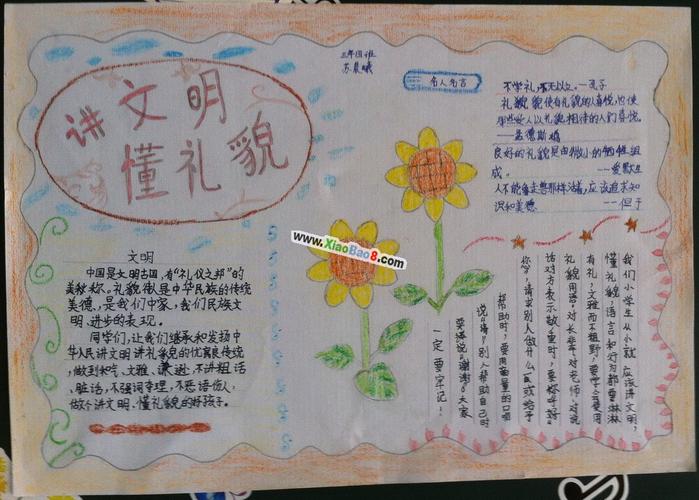 讲文明
懂礼貌
三年四班
苏晨曦
名人名言
不学礼,无以立。—孔子
礼貌使有礼貌的人喜悦,也使
那些受人以礼貌相待的人们喜悦
——孟德斯鸠
良好的礼貌是由微小的牺牲组
成。——爱默生
人不能像走兽那样活着,应该追求知
识和美德 ——但丁
www.XiaoBao8.com
文明
中国是文明古国,有“礼仪之邦”的
美称。礼貌是中华民族的传统
美德,是我们国家,我们民族文
明、进步的表现。
同学们,让我们继承和发扬中
华人民讲文明讲礼貌的优良传统,
做到和气、文雅、谦逊,不讲粗话、
脏话,不强词夺理,不恶语伤人,
做个讲文明、懂礼貌的好孩子。
我们小学生从小就应该讲文明,
懂礼貌,语言和行为都要彬彬
有礼,文雅而不粗野,要学会使用
礼貌用语。对长辈、对老师,对说
话对方表示敬重时,要称呼“您”
你”,请求别人做什么或给予
帮助时,要用商量的口吻
说“请”别人帮助自己时
要说“谢谢”大家
一定要牢记!